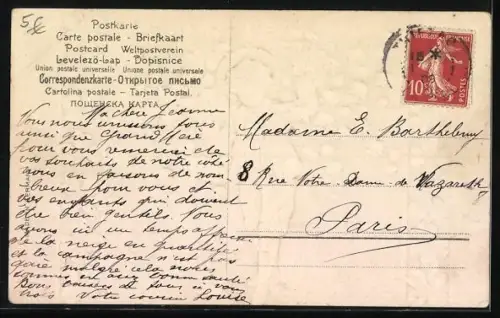 5€
Postkarie
Carte postale - Briefkaart
Postcard Weltpostverein
Levelező-Lap - Dopisnice
Union postale universelle Unione postale universale
Correspondenzkarte - Открытое письмо
Cartolina postale - Tarjeta Postal.
ПОЩЕНСКА КАРТА
Ma chère Jeanne
Nous nous unissons tous
ainsi que Grand Mère
pour vous remercier de
vos souhaits de notre côté
nous en faisons de nom
breux pour vous et
vos enfants qui doivent
être bien gentils. Nous
avons ici un temps
de la neige en quantité
et la campagne n'est pas
gaie malgré cela nous
sommes en bonne santé
Bons baisers de tous à vous
trois Votre cousine Louise
Madame E. Barthélemy
8 Rue Notre-Dame-de-Nazareth
Paris
10
POSTES